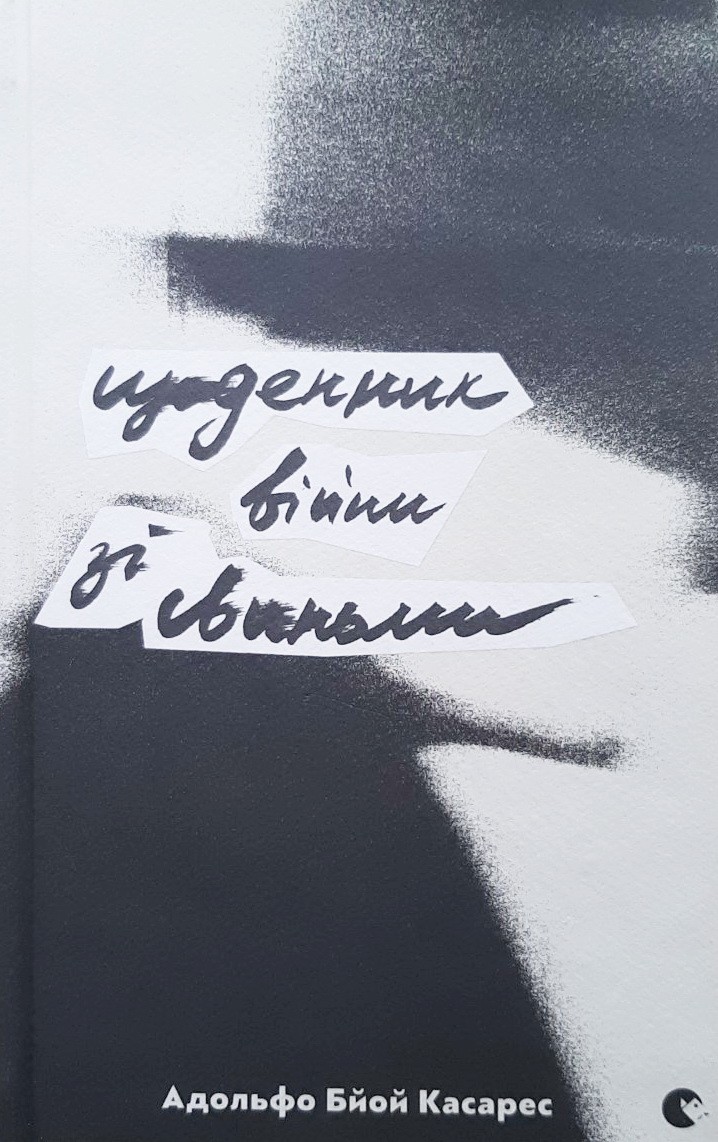 щоденник
війни
зі
свиньми
Адольфо Бйой Касарес